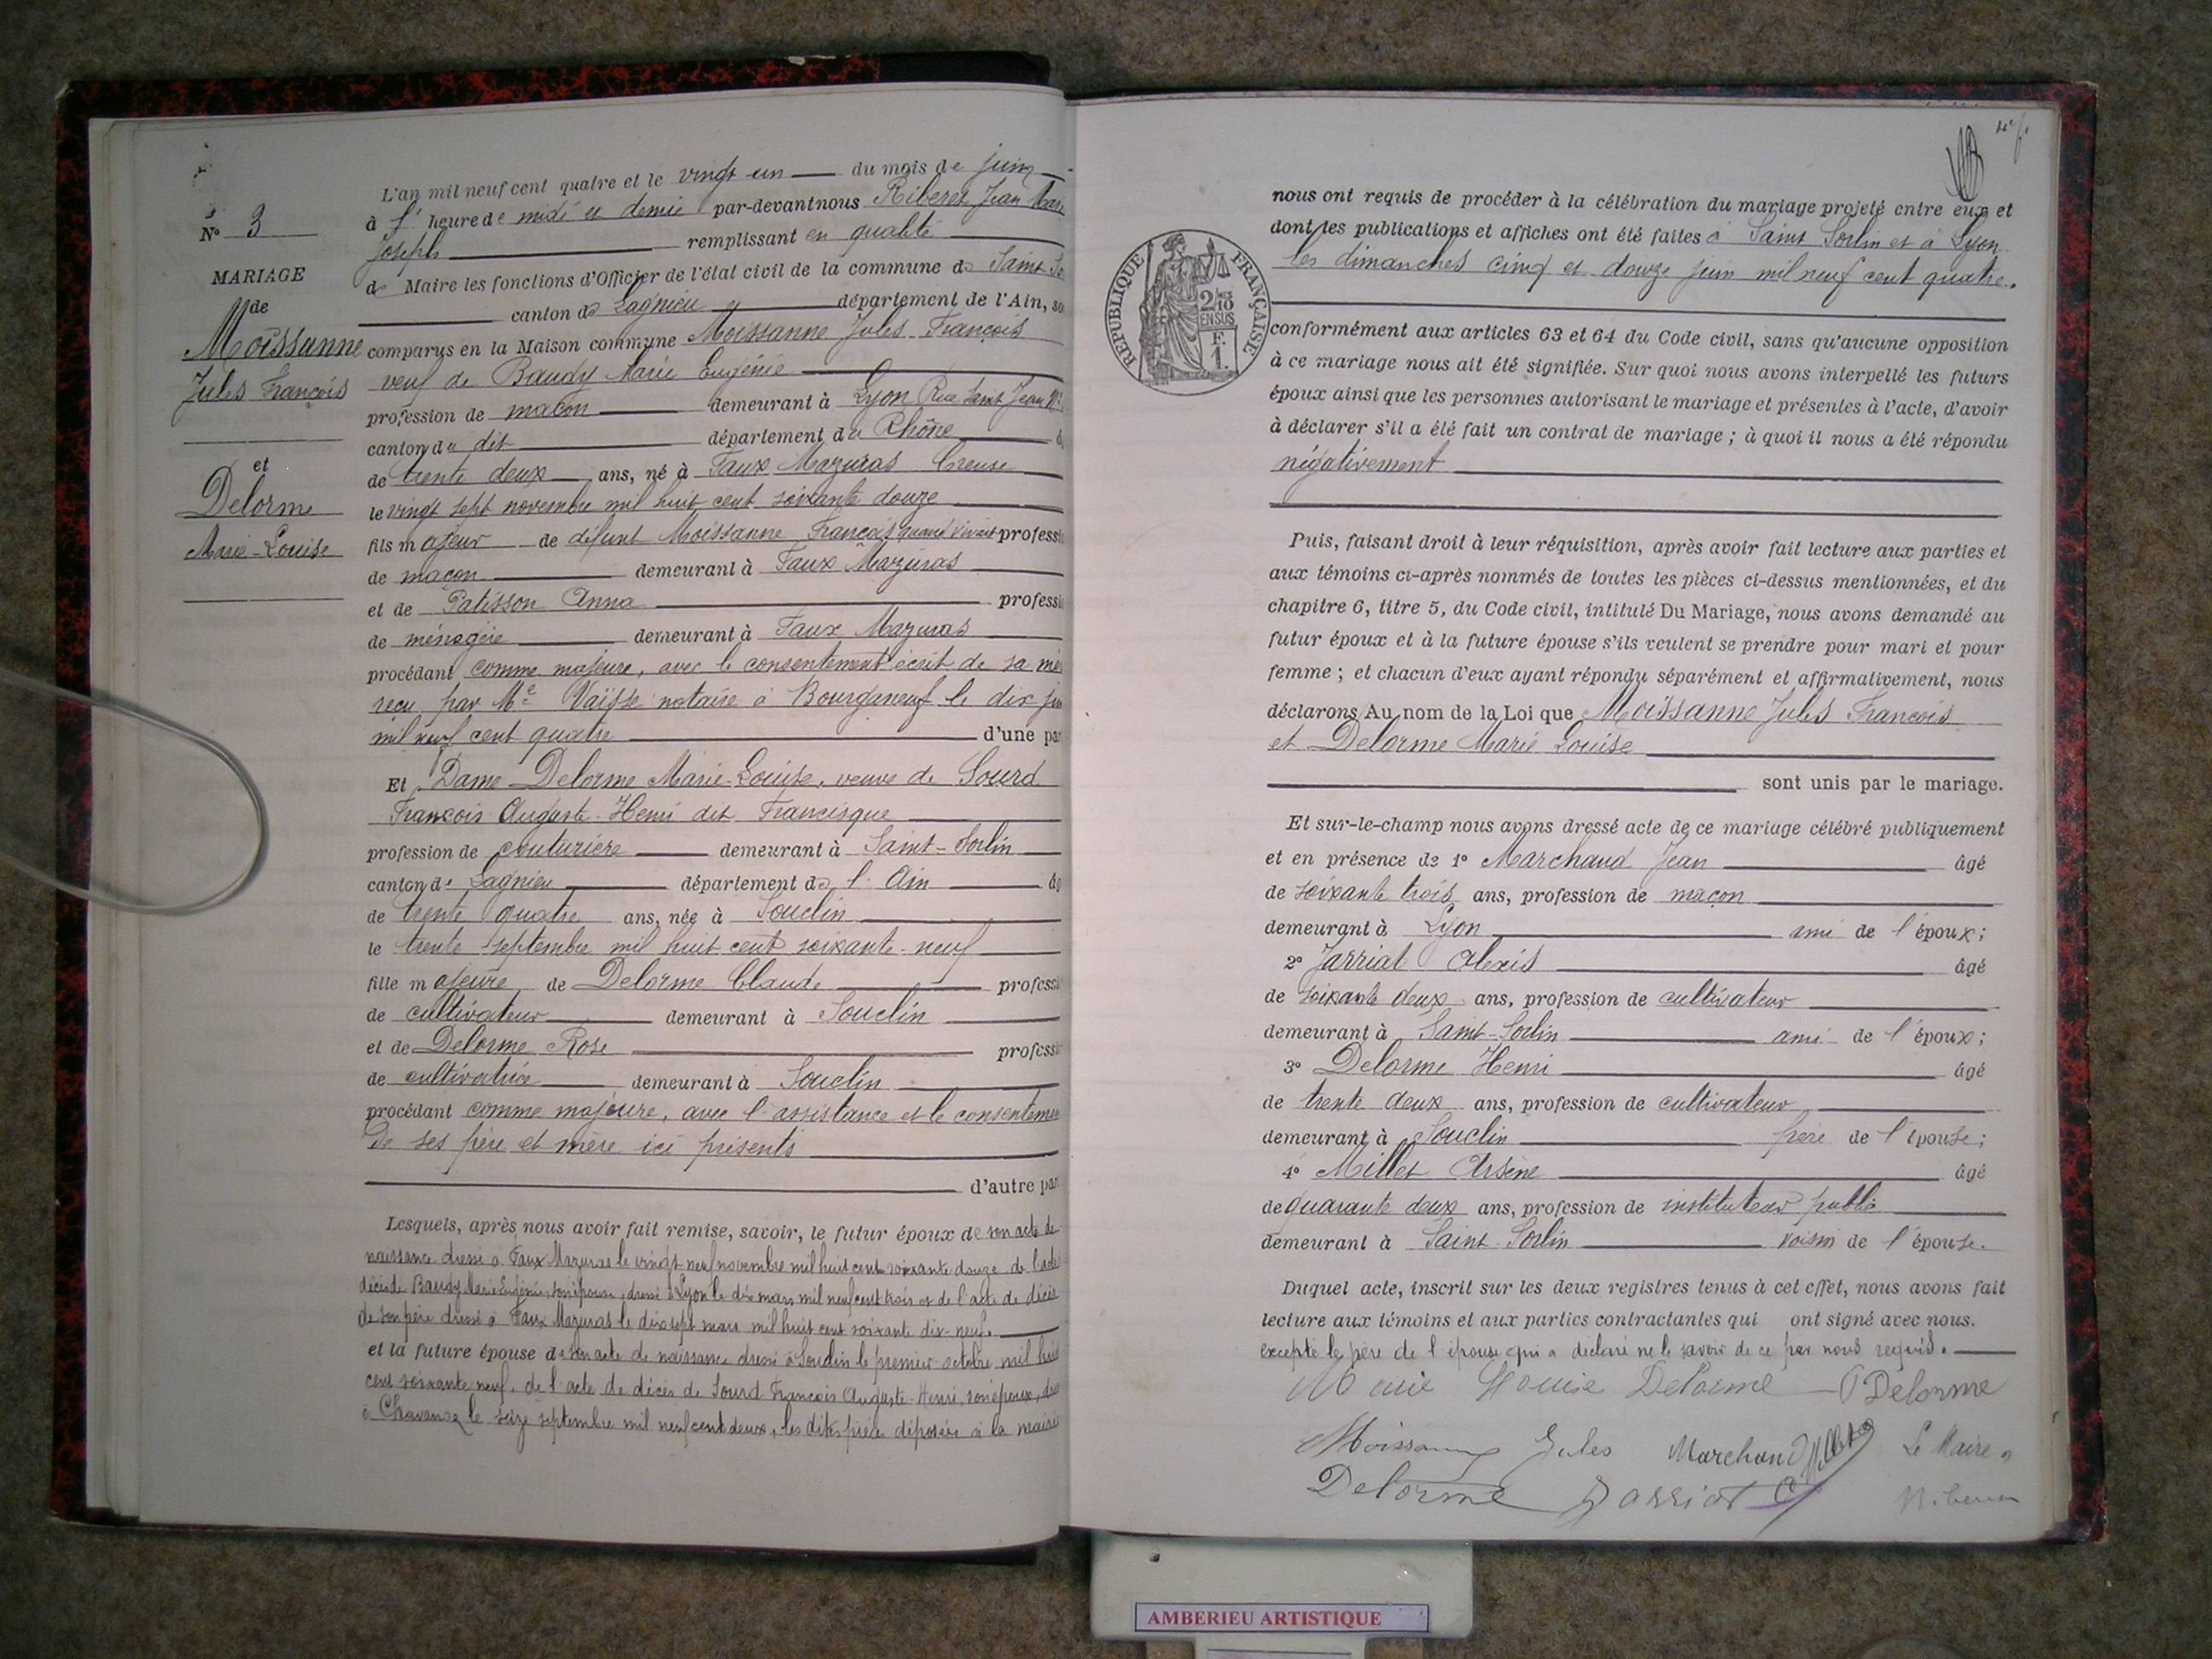 N° 3
MARIAGE
de
Moissanne
Jules François
et
Delorme
Marie-Louise
L'an mil neuf cent quatre et le vingt un du mois de juin
à l' heure de midi et demie par-devant nous Riberet Jean Marie
Joseph remplissant en qualité
de Maire les fonctions d'Officier de l'état civil de la commune de Saint So
canton de Lagnieu département de l'Ain, so
comparus en la Maison commune Moissanne Jules François
veuf de Baudy Marie Eugénie
profession de maçon demeurant à Lyon Rue Saint Jean
canton du dit département du Rhône
de trente deux ans, né à Faux Mazuras Creuse
le vingt sept novembre mil huit cent soixante douze
fils majeur de défunt Moissanne François quand vivait professi
de maçon demeurant à Faux Mazuras
et de Patisson Anna professi
de ménagère demeurant à Faux Mazuras
procédant comme majeure, avec le consentement écrit de sa mè
reçu par Me Vaïsse notaire à Bourganeuf le dix jui
mil neuf cent quatre d'une par
Et Dame Delorme Marie-Louise, veuve de Sourd
François Auguste Henri dit Francisque
profession de couturière demeurant à Saint-Sorlin
canton de Lagnieu département de l'Ain âg
de trente quatre ans, née à Souclin
le trente septembre mil huit cent soixante-neuf
fille majeure de Delorme Claude professi
de cultivateur demeurant à Souclin
et de Delorme Rose professi
de cultivatrice demeurant à Souclin
procédant comme majeure, avec l'assistance et le consenteme
de ses père et mère ici présents
d'autre par
Lesquels, après nous avoir fait remise, savoir, le futur époux de son acte de
naissance dressé à Faux Mazuras le vingt neuf novembre mil huit cent soixante douze de l'acte
décès de Baudy Marie Eugénie, son épouse, dressé à Lyon le dix mars mil neuf cent trois et de l'acte de décès
de son père dressé à Faux Mazuras le dix sept mars mil huit cent soixante dix-neuf.
et la future épouse de son acte de naissance dressé à Souclin le premier octobre mil huit
cent soixante neuf, de l'acte de décès de Sourd François Auguste-Henri, son époux, dre
à Chavanoz le seize septembre mil neuf cent deux, les dites pièces déposées à la mairie
nous ont requis de procéder à la célébration du mariage projeté entre eux et
dont les publications et affiches ont été faites à Saint Sorlin et à Lyon
les dimanches cinq et douze juin mil neuf cent quatre.
RÉPUBLIQUE FRANÇAISE
2/10
EN SUS
F.
1.
conformément aux articles 63 et 64 du Code civil, sans qu'aucune opposition
à ce mariage nous ait été signifiée. Sur quoi nous avons interpellé les futurs
époux ainsi que les personnes autorisant le mariage et présentes à l'acte, d'avoir
à déclarer s'il a été fait un contrat de mariage ; à quoi il nous a été répondu
négativement
Puis, faisant droit à leur réquisition, après avoir fait lecture aux parties et
aux témoins ci-après nommés de toutes les pièces ci-dessus mentionnées, et du
chapitre 6, titre 5, du Code civil, intitulé Du Mariage, nous avons demandé au
futur époux et à la future épouse s'ils veulent se prendre pour mari et pour
femme ; et chacun d'eux ayant répondu séparément et affirmativement, nous
déclarons Au nom de la Loi que Moissanne Jules François
et Delorme Marie Louise
sont unis par le mariage.
Et sur-le-champ nous avons dressé acte de ce mariage célébré publiquement
et en présence de 1° Marchand Jean âgé
de soixante trois ans, profession de maçon
demeurant à Lyon ami de l'époux ;
2° Jarriat Alexis âgé
de soixante deux ans, profession de cultivateur
demeurant à Saint-Sorlin ami de l'époux ;
3° Delorme Henri âgé
de trente deux ans, profession de cultivateur
demeurant à Souclin frère de l'épouse ;
4° Millet Arsène âgé
de quarante deux ans, profession de instituteur public
demeurant à Saint-Sorlin voisin de l'épouse.
Duquel acte, inscrit sur les deux registres tenus à cet effet, nous avons fait
lecture aux témoins et aux parties contractantes qui ont signé avec nous.
excepté le père de l'épouse qui a déclaré ne le savoir de ce par nous requis.
Marie Louise Delorme Delorme
Moissanne Jules Marchand Millet Le Maire,
Delorme Jarriat Riberet
AMBERIEU ARTISTIQUE